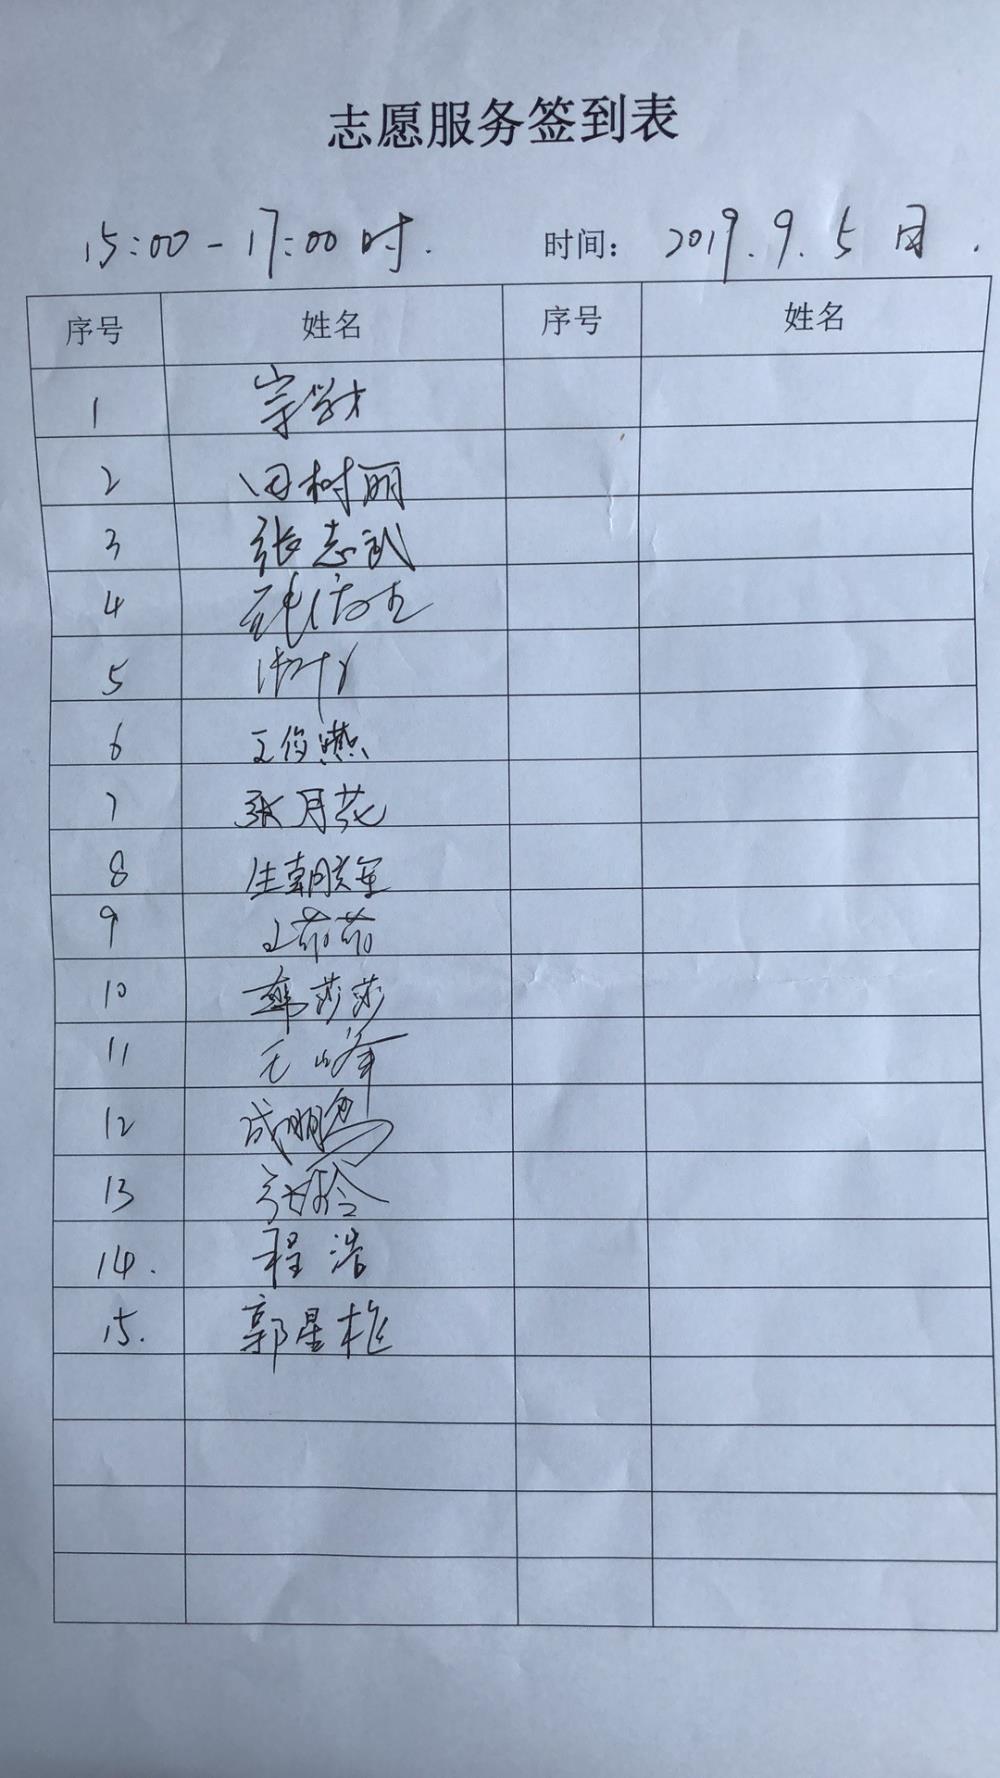 志愿服务签到表
15:00-17:00时. 时间: 2019.9.5日.
序号 姓名 序号 姓名
1 宗学才
2 田树丽
3 张志武
4
5
6 王俊燕
7 张月花
8
9 王茹茹
10 韩莎莎
11 王峰
12 成鹏
13 张玲
14. 程浩
15. 郭星